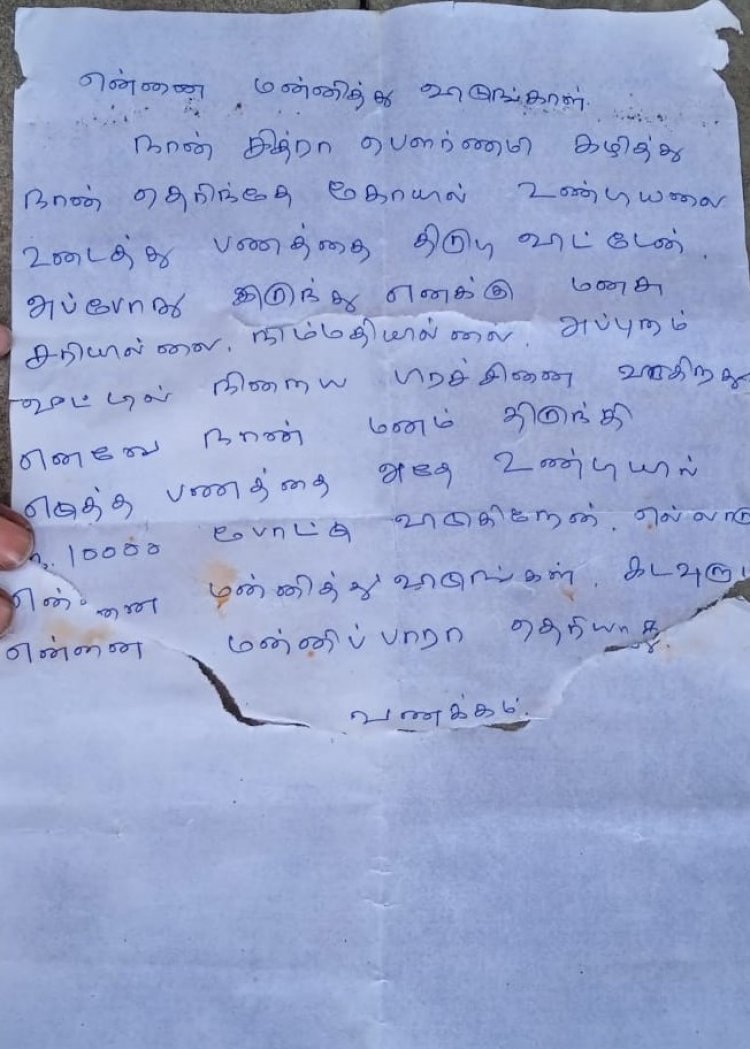 என்னை மன்னித்து விடுங்கள்.
நான் சித்ரா பௌர்ணமி கழித்து
நான் தெரிந்தே கோயில் உண்டியலை
உடைத்து பணத்தை திருடி விட்டேன்.
அப்போது இருந்து எனக்கு மனசு
சரியில்லை. நிம்மதியில்லை. அப்புறம்
வீட்டில் நிறைய பிரச்சினை வருகிறது
எனவே நான் மனம் திருந்தி
எடுத்த பணத்தை அதே உண்டியில்
ரூ. 10000 போட்டு விடுகிறேன். எல்லாரு
என்னை மன்னித்து விடுங்கள். கடவுளு
என்னை மன்னிப்பாரா தெரியாது.
வணக்கம்.